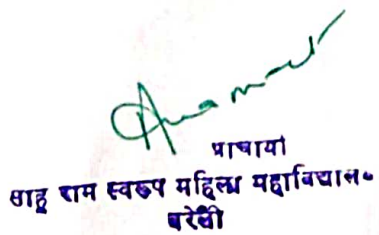 प्राचार्या
साहू राम स्वरूप महिला महाविद्यालय
बरेली